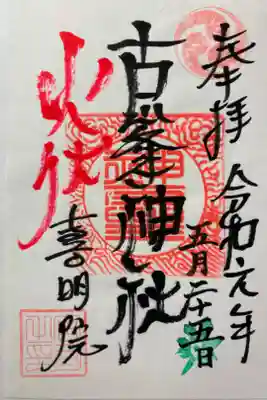 奉拝
令和元年
五月二十五日
古峯神社
火伏
喜明院